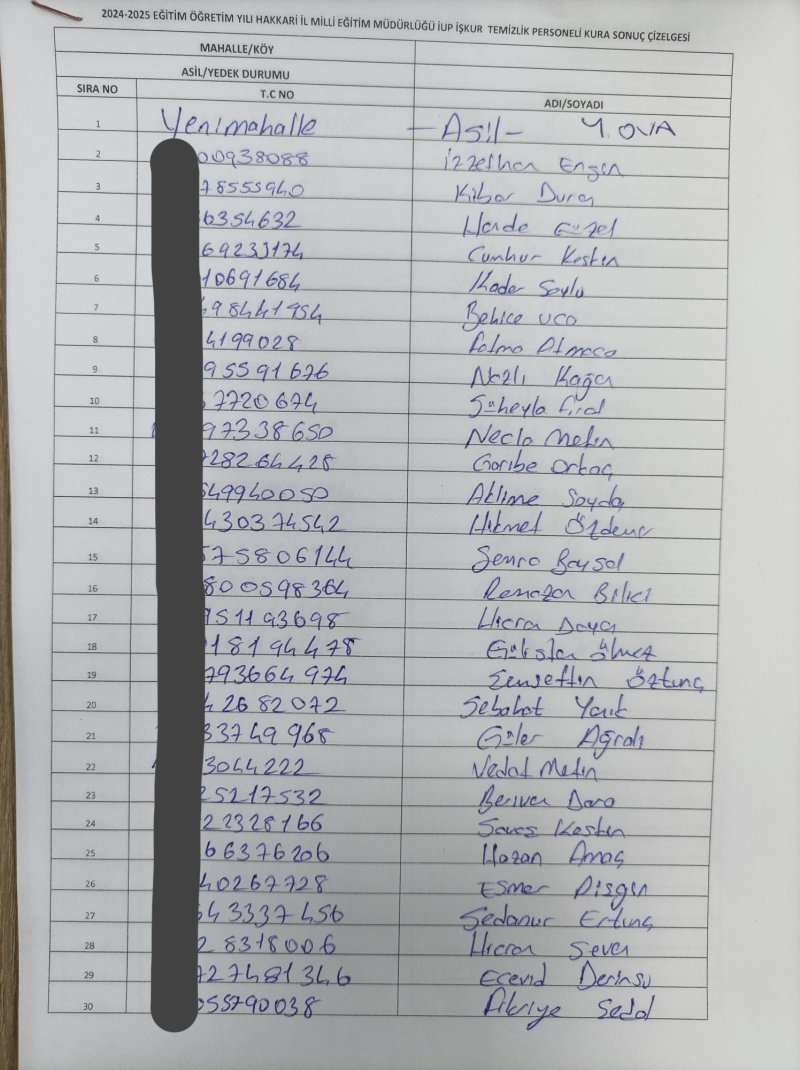 2024-2025 EĞİTİM ÖĞRETİM YILI HAKKARİ İL MİLLİ EĞİTİM MÜDÜRLÜĞÜ İUP İŞKUR TEMİZLİK PERSONELİ KURA SONUÇ ÇİZELGESİ
MAHALLE/KÖY
ASİL/YEDEK DURUMU
SIRA NO T.C NO ADI/SOYADI
1 Yenimahalle -Asil- Y.OVA
2 00938088 İzzethan Engin
3 78555940 Kibar Duraş
4 6354632 Hande Güzel
5 69233174 Cumhur Keskin
6 10691684 Kader Soylu
7 98441954 Behice uca
8 4199028 Fatma Atmaca
9 95591676 Nazlı Kağar
10 7720674 Süheyla fırat
11 97338650 Necla Metin
12 28264428 Garibe Ortaç
13 49940050 Atlime Saydaş
14 430374542 Hikmet Özdemir
15 75806144 Semra Baysal
16 800598364 Ramazan Bilici
17 951193698 Hicran Dayan
18 18194478 Gülistan Ölmez
19 793664974 Şemsettin Öztunç
20 2682072 Sebahat Yarlık
21 33749968 Güler Ağralı
22 3044222 Vedat Metin
23 25217532 Berivan Dara
24 22328166 Savaş Keskin
25 66376206 Hazan Amaç
26 40267728 Esmer Dizgin
27 43337456 Sedanur Ertunç
28 28318006 Hicran Seven
29 727481346 Ecevid Derinsu
30 055790038 Fikriye Sedal